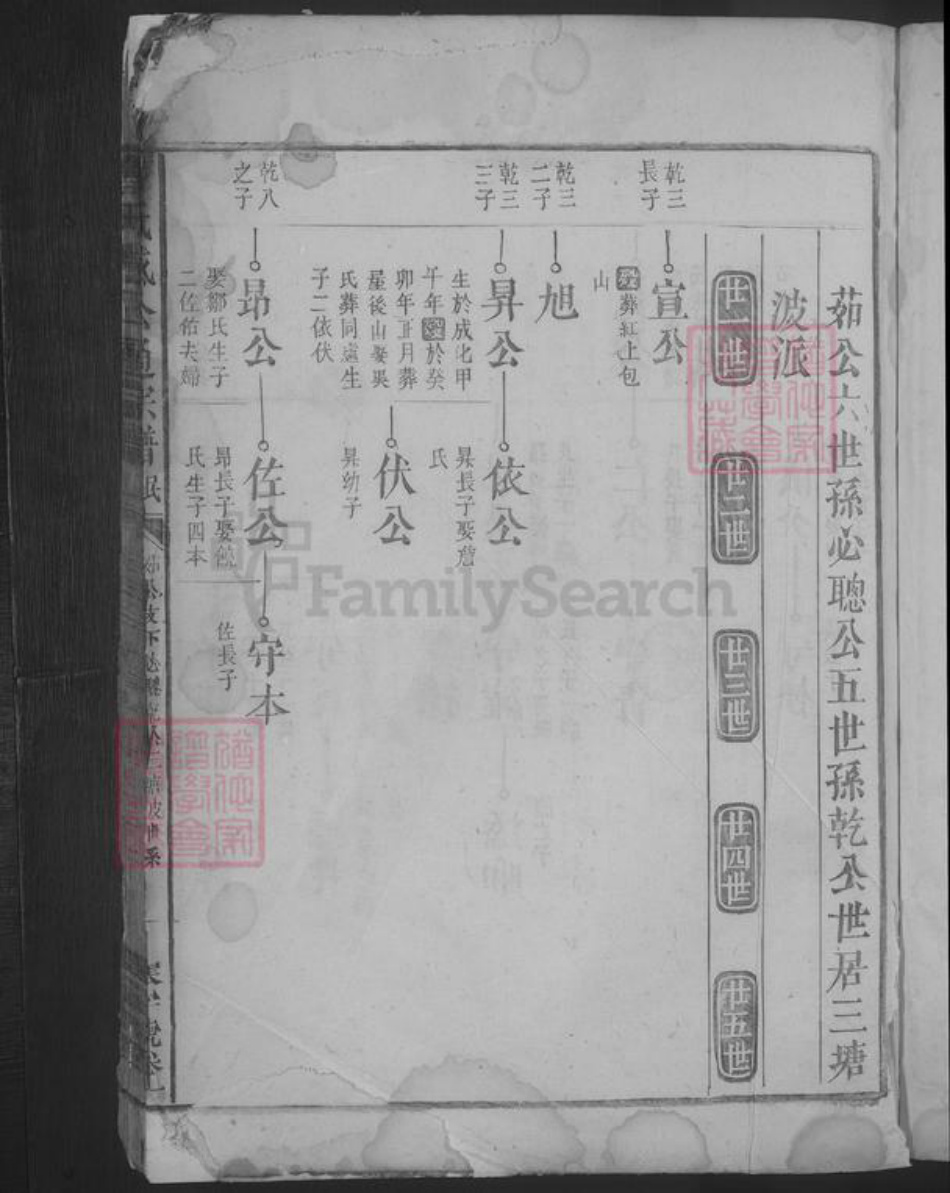 茹公六世孫必聰公五世孫乾公世居三塘
波派
廿一世
廿二世
廿三世
廿四世
廿五世
乾三
長子
宣公
歿葬紅上包
山
乾三
二子
旭
乾三
三子
昇公
生於成化甲
午年歿於癸
卯年正月葬
屋後山娶吳
氏葬同遠生
子二依伏
依公
昇長子娶詹
氏
伏公
昇幼子
乾八
之子
昂公
娶鄒氏生子
二佐佑夫婦
佐公
昂長子娶饒
氏生子四本
守本
佐長子
公通宗譜
FamilySearch